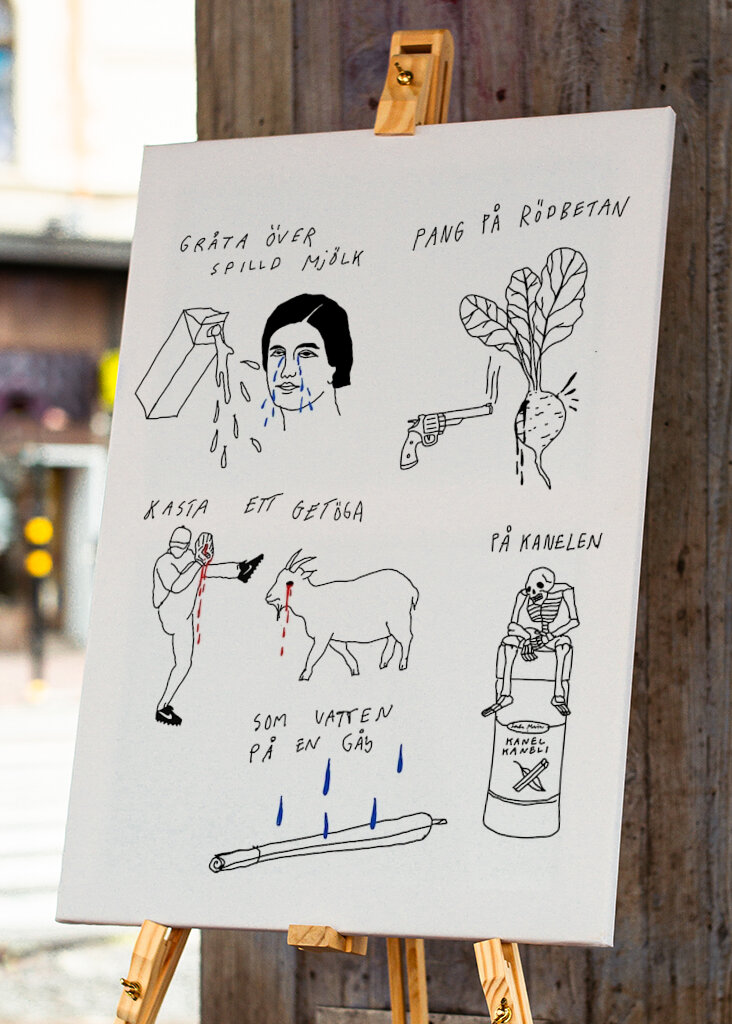 GRÅTA ÖVER
SPILLD MJÖLK
PANG PÅ RÖDBETAN
KASTA ETT GETÖGA
PÅ KANELEN
KANEL
KANELI
SOM VATTEN
PÅ EN GÅS